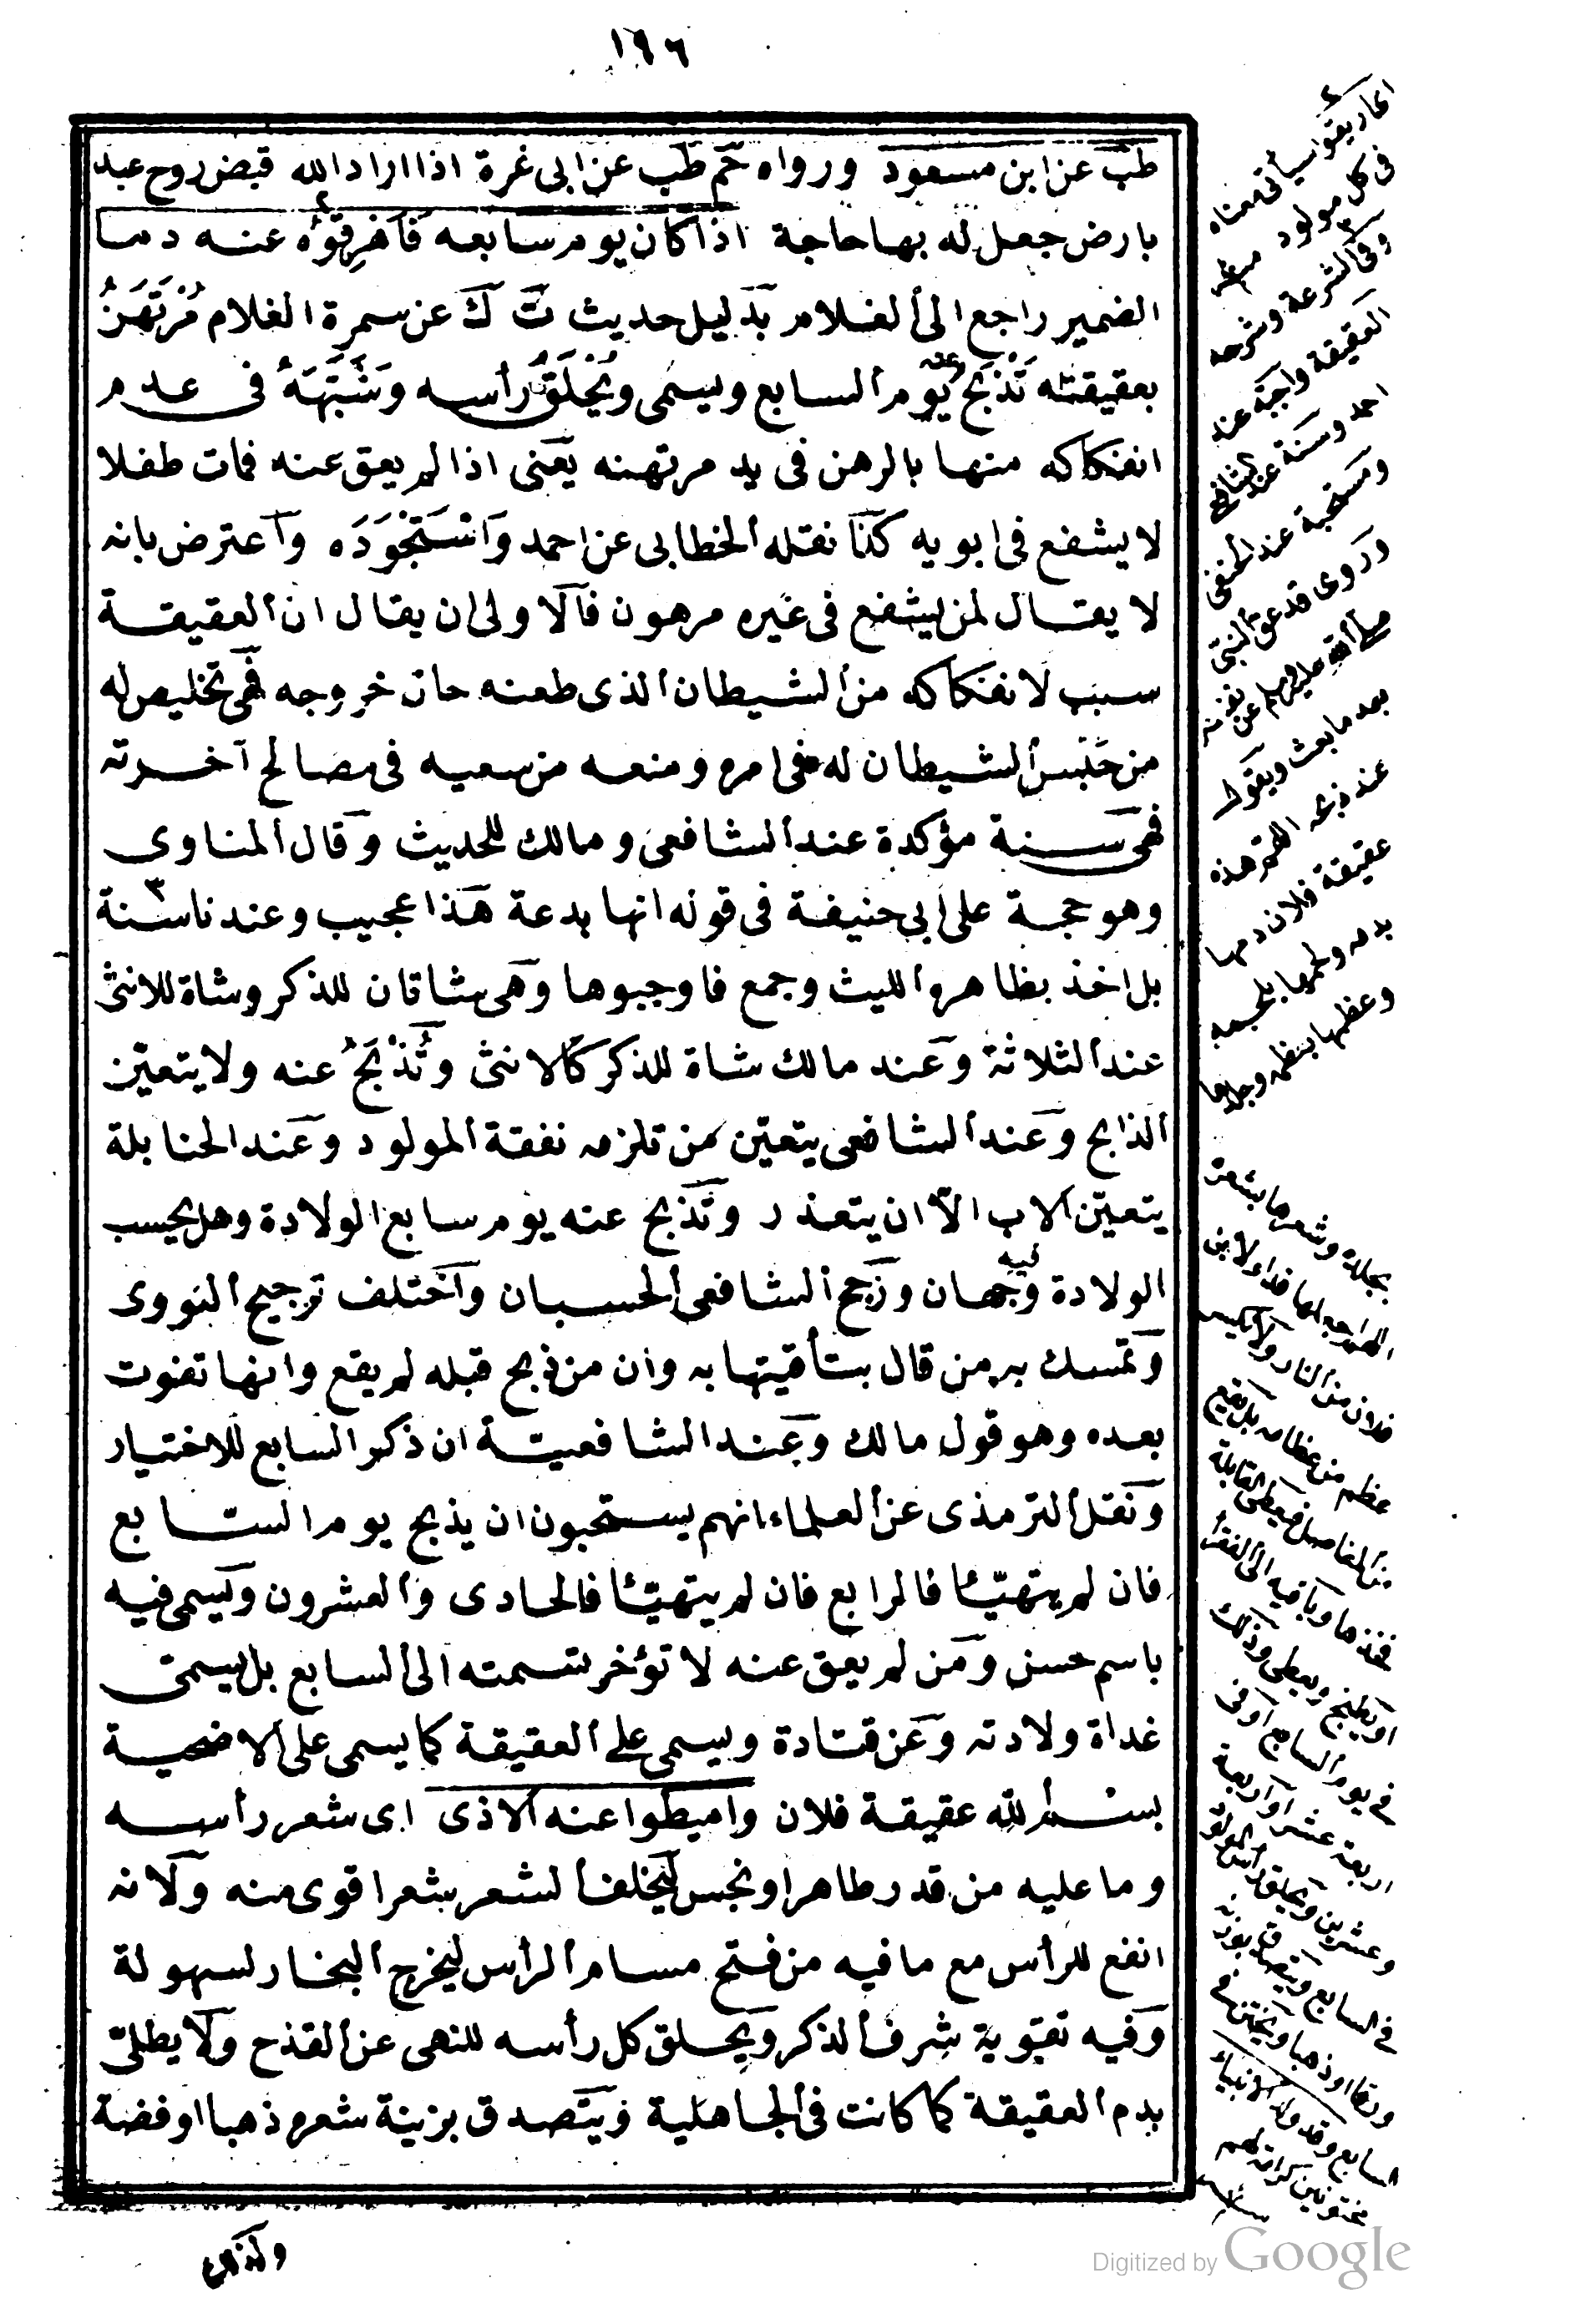 ١٩٦
طب عن ابن مسعود ورواه حم طب عن ابى غرة اذا اراد الله قبض روح عبد
بارض جعل له بها حاجة اذا كان يوم سابعه فاهرقوه عنه دما
الضمير راجع الى الغلام بدليل حديث ت ك عن سمرة الغلام مُرْتَهَنٌ
بعقيقته تُذْبَحُ عنه يوم السابع ويسمى ويُحْلَقُ رأسه وشَبَّهَهُ فى عدم
انفكاكه منها بالرهن فى يد مرتهنه يعنى اذا لم يعق عنه فمات طفلا
لا يشفع فى ابويه كذا نقله الخطابى عن احمد واستجوده واعترض بانه
لا يقال لمن يشفع فى غيره مرهون فالاولى ان يقال ان العقيقة
سبب لانفكاكه من الشيطان الذى طعنه حان خروجه فهى تخليص له
من حَبْس الشيطان له فى امره ومنعه من سعيه فى مصالح آخرته
فهى سنة مؤكدة عند الشافعى ومالك للحديث وقال المناوى
وهو حجة على ابى حنيفة فى قوله انها بدعة هذا عجيب وعندنا سنة ٣
بل اخذ بظاهره الليث وجمع فاوجبوها وهى شاتان للذكر وشاة للانثى
عند الثلاثة وعند مالك شاة للذكر كالانثى وتُذْبَحُ عنه ولا يتعيّن
الذابح وعند الشافعى يتعيّن من تلزمه نفقة المولود وعند الحنابلة
يتعيّن الاب الاّ ان يتعذر وتذبح عنه يوم سابع الولادة وهل يحسب
الولادة فيه وجهان ورجح الشافعى الحسبان واختلف ترجيح النووى
وتمسك به من قال بتأقيتها به وان من ذبح قبله لم يقع وانها تفوت
بعده وهو قول مالك وعند الشافعيّة ان ذكر السابع للاختيار
ونقل الترمذى عن العلماء انهم يستحبون ان يذبح يوم السّابع
فان لم يتهيّئا فالرابع فان لم يتهيّئا فالحادى والعشرون ويسمى فيه
باسم حسن ومن لم يعق عنه لا تؤخر تسمته الى السابع بل يسمّى
غداة ولادته وعن قتادة ويسمى على العقيقة كما يسمى على الاضحية
بسم الله عقيقة فلان واميطوا عنه الاذى اى شعر رأسه
وما عليه من قدر طاهر او نجس ليخلف الشعر بشعر اقوى منه ولانه
انفع للرأس مع ما فيه من فتح مسام الرأس ليخرج البخار لسهولة
وفيه تقوية شرف الذكر ويحلق كل رأسه للنهى عن القذح ولا يطلى
بدم العقيقة كما كانت فى الجاهلية ويتصدق بزينة شعره ذهبا او فضة
فى كل مولود
وفى الشرعة وشرحه
العقيقة واجبة عند
احمد وسنة عند الشافعى
ومستحبة عند الحنفى
وروى قد عق النبى
صلى الله عليه وسلم عن نفسه
بعد ما بعث ويقول
عند ذبحه اللهم هذه
عقيقة فلان دمها
بدمه ولحمها بلحمه
وعظمها بعظمه وجلدها
بجلده وشعرها بشعره
اللهم اجعلها فداء لابن
فلان من النار ولا يكسر
عظم من عظامه بل يقطع
من المفاصل فيعطى القابلة
فخذها وباقيه الى الفقراء
او يطبخ ويعطى وذلك
فى يوم السابع او فى
اربعة عشر او اربعة
وعشرين ويحلق رأس المولود
فى السابع ويتصدق بوزنه
ورقا او ذهبا ويختتن فى
السابع وقد ولد الانبياء
مختونين كرامة لهم